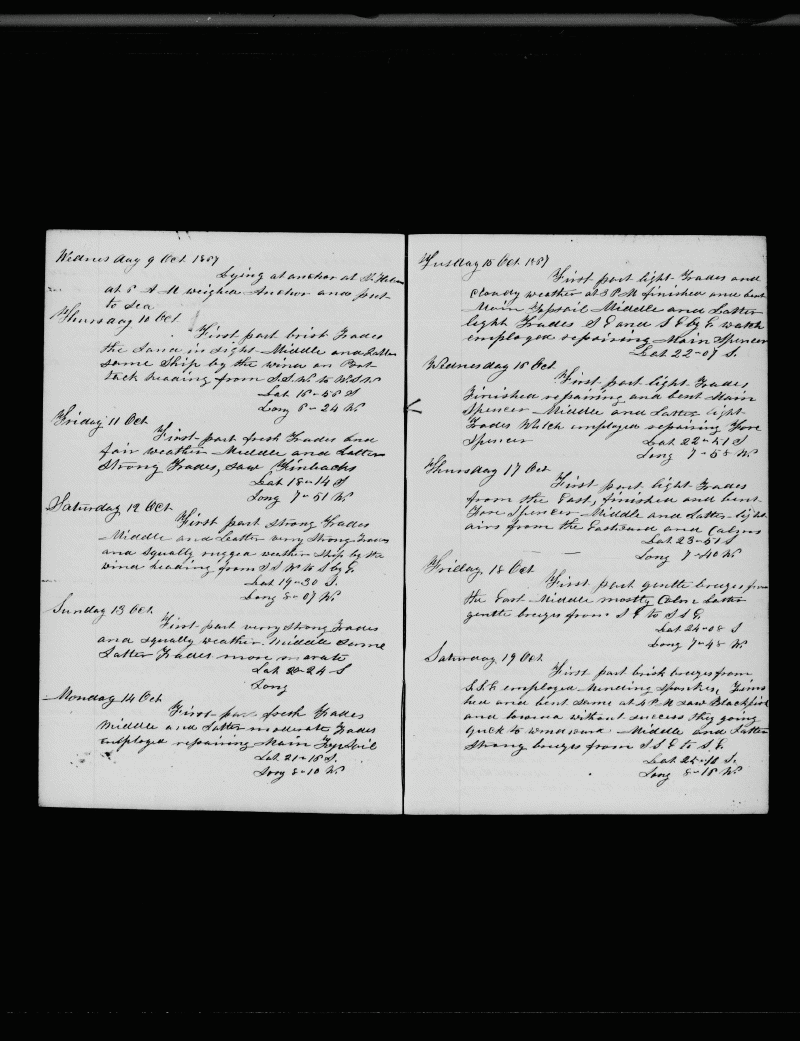 Wednesday 9 Oct 1867
Lying at anchor at St Helena
at 5 A M weighed Anchor and put
to Sea
Thursday 10 Oct
First part brisk Trades
the Land in sight Middle and Latter
same Ship by the wind on Port
tack heading from S.S.W. to W.S.W.
Lat 16-56 S
Long 6-24 W
Friday 11 Oct
First part fresh Trades and
fair weather Middle and Latter
strong Trades, saw Finbacks
Lat 18-14 S
Long 7-51 W
Saturday 12 Oct
First part strong Trades
Middle and Latter very strong Trades
and squally rugged weather Ship by the
wind heading from S S W to S by E.
Lat 19-30 S.
Long 8-07 W
Sunday 13 Oct.
First part very strong Trades
and squally weather. Middle same
Latter Trades more morate
Lat 20-24 S
Long
Monday 14 Oct
First part fresh Trades
Middle and Latter moderate Trades
employed repairing Main Topsail
Lat. 21-15 S.
Long 8-10 W
Tusday 15 Oct. 1867
First part light Trades and
cloudy weather at 3 P M finished and bent
Main Topsail Middle and Latter
light Trades S E and S E by E watch
employed repairing Main Spencer
Lat 22-07 S.
Wednesday 16 Oct
First part light Trades,
Finished repairing and bent Main
Spencer Middle and Latter light
Trades Watch employed repairing Fore
Spencer Lat 22-51 S
Long 7-58 W
Thursday 17 Oct
First part light Trades
from the East, finished and bent
Fore Spencer Middle and Latter light
airs from the Eastward and Calms
Lat 23-51 S
Long 7-40 W.
Friday 18 Oct
First part gentle breezes from
the East Middle mostly Calm Latter
gentle breezes from S E to S S E.
Lat 24-08 S
Long 7-48 W.
Saturday 19 Oct
First part brisk breezes from
S.S.E employed mending Spanker, Finis
hed and bent same at 4 P.M saw Blackfish
and lowered without success they going
quck to windward Middle and Latter
strong breezes from S S E to S.E.
Lat 25-10 S.
Long 8-15 W